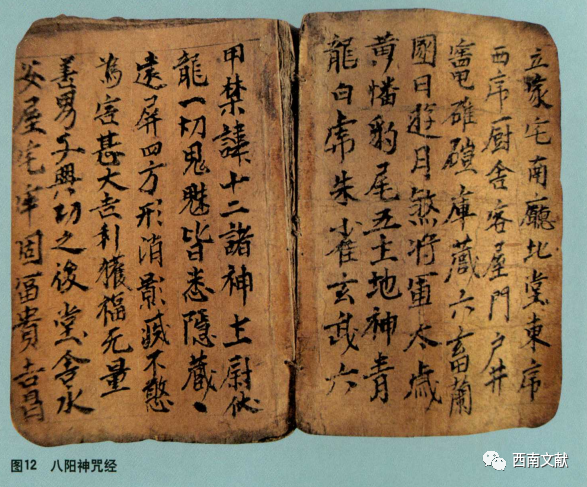 立冢宅南廳北堂東序
西序厨舍客屋門户井
竈碓磑庫藏六畜蘭
圂日遊月煞將軍太歲
黄幡豹尾五土地神青
龍白虎朱雀玄武六
甲禁諱十二諸神土尉伏
龍一切鬼魅皆悉隱藏、
遠屏四方形消影滅不敢
為害甚大吉利獲福无量
善男子興功之後堂舍永
安屋宅牢固冨貴吉昌
图12 八阳神咒经
西南文献